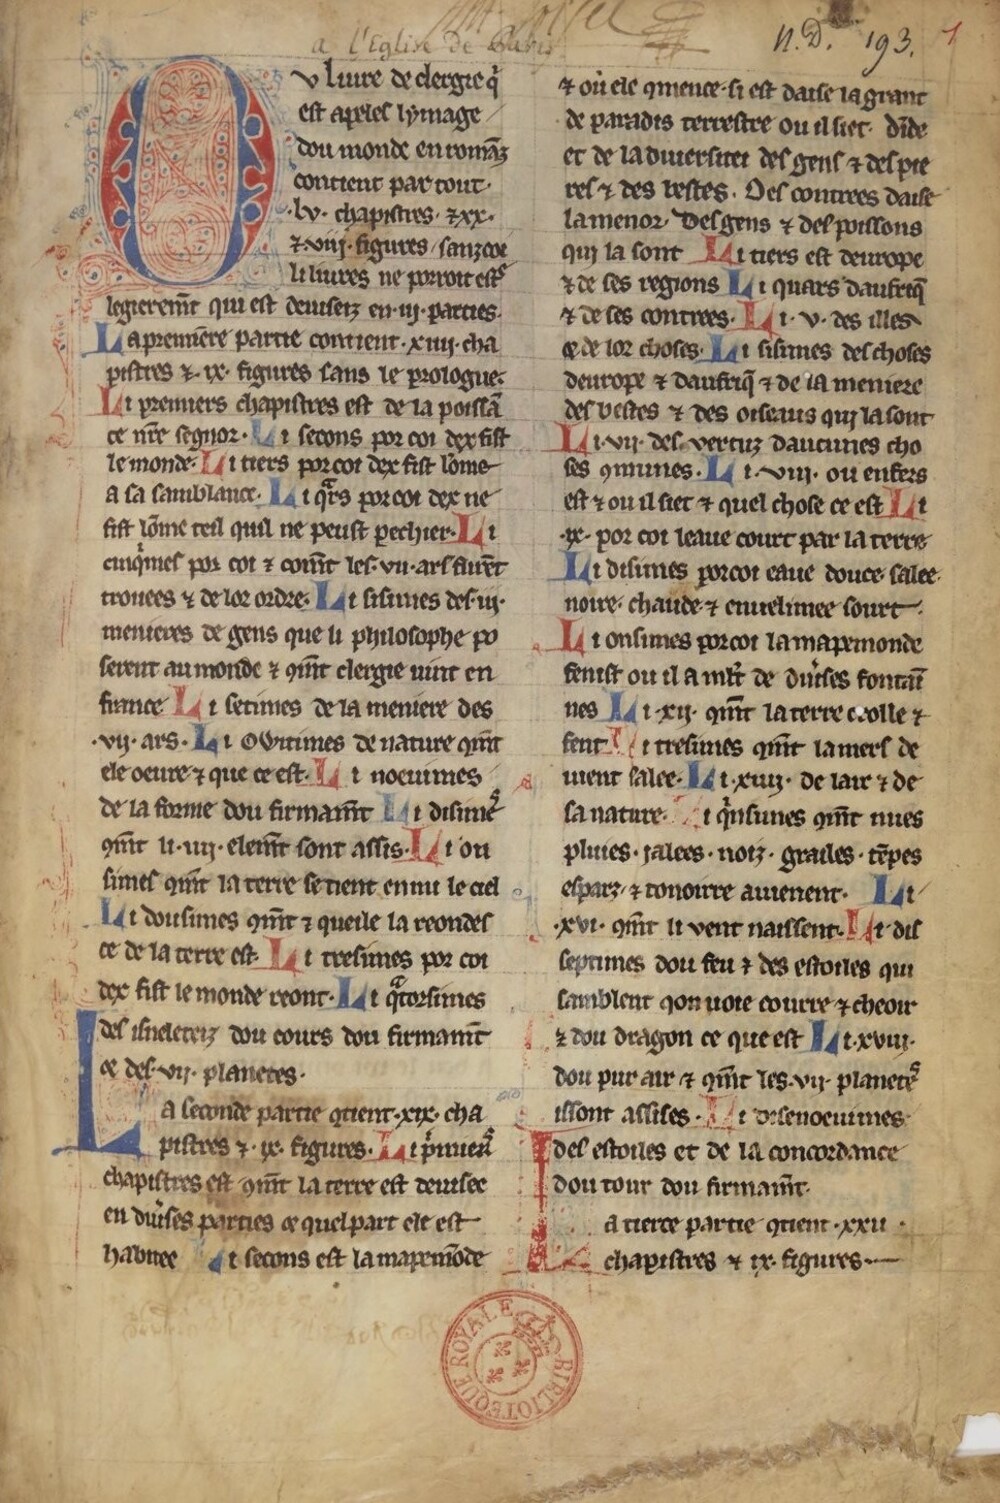 a l'Eglise de Paris
N.D. 193. 1
Ou liure de clergie q̇
est apeles lymage
dou monde en romāz
contient par tout·
·lv· chapistres· ⁊ xx·
⁊ viij· figures / sanz coi
li liures ne porroit estᷣ
legieremt̄ qui est deuisetz en ·iij· parties·
La premiere partie contient ·xiiij· cha
pistres ⁊ ·ix· figures sans le prologue·
Li premiers chapistres est de la poissā
ce nr̄e segnor· Li secons por coi dex fist
le monde· Li tiers por coi dex fist lōme
a sa samblance· Li qᷓrs por coi dex ne
fist lōme teil quil ne peust pechier· Li
cinq̇mes por coi ⁊ comt̄ les ·vii· ars furēt
trouees ⁊ de lor ordre· Li sisimes des ·iij·
menieres de gens que li philosophe po
serent au monde ⁊ qm̄t clergie uint en
france Li setimes de la meniere des
·vij· ars· Li Owitimes de nature qm̄t
ele oeure ⁊ que ce est· Li noeuimes
de la forme dou firmamt̄ Li disimeˢ
qm̄t li ·iiij· elemt̄ sont assis· Li on
simes qm̄t la terre se tient enmi le ciel
Li dousimes qm̄t ⁊ queile la reondes
ce de la terre est· Li tresimes por coi
dex fist le monde reont· Li qᷓtorsimes
des isneleteiz dou cours dou firmamt̄
⁊ des ·vij· planetes·
La seconde partie ꝯtient ·xix· cha
pistres ⁊ ·ix· figures· Li p̍mierˢ
chapistres est qm̄t la terre est deuisee
en diu̍ses parties ⁊ quel part ele est
habitee Li secons est la mapemōde
⁊ ou ele ꝯmence· si est daise la grant
de paradis terrestre ou il siet· dīde
et de la diuersitei des gens ⁊ des pie
res ⁊ des bestes· Des contrees daise
la menor· Des gens ⁊ des poissons
qui la sont Li tiers est deurope
⁊ de ses regions Li quars daufriq̄
⁊ de ses contrees· Li ·v· des illes
⁊ de lor choses· Li sisimes des choses
deurope ⁊ daufriq̄ ⁊ de la meniere
des bestes ⁊ des oiseaus qui la sont
Li ·vii· des vertuz daucunes cho
ses ꝯmunes· Li ·viii· ou enfers
est ⁊ ou il siet ⁊ quel chose ce est Li
·ix· por coi leaue court par la terre
Li disimes por coi eaue douce· salee·
noire· chaude ⁊ enuelimee sourt·
Li onsimes por coi la mapemonde
fenist ou il a mlt̄ de diu̍ses fontai
nes Li ·xij· qm̄t la terre crolle ⁊
fent Li tresimes qm̄t la mers de
uient salee· Li ·xiiij· de lair ⁊ de
sa nature· Li q̍nsimes qm̄t nues
pluies· jalees· noiz· grailes· tēpes
esparz· ⁊ tonoirre auienent· Li
·xvi· qm̄t li vent naissent· Li dis
septimes dou feu ⁊ des estoiles qui
samblent qon uoie courre ⁊ cheoir
⁊ dou dragon ce que est Li ·xviii·
dou pur air ⁊ qm̄t les ·vij· planeteˢ
i sont assises· Li disenoeuimes
des estoiles et de la concordance
dou tour dou firmamt̄·
La tierce partie ꝯtient ·xxii·
chapistres ⁊ ix· figures·
BIBLIOTEQUE ROYALE